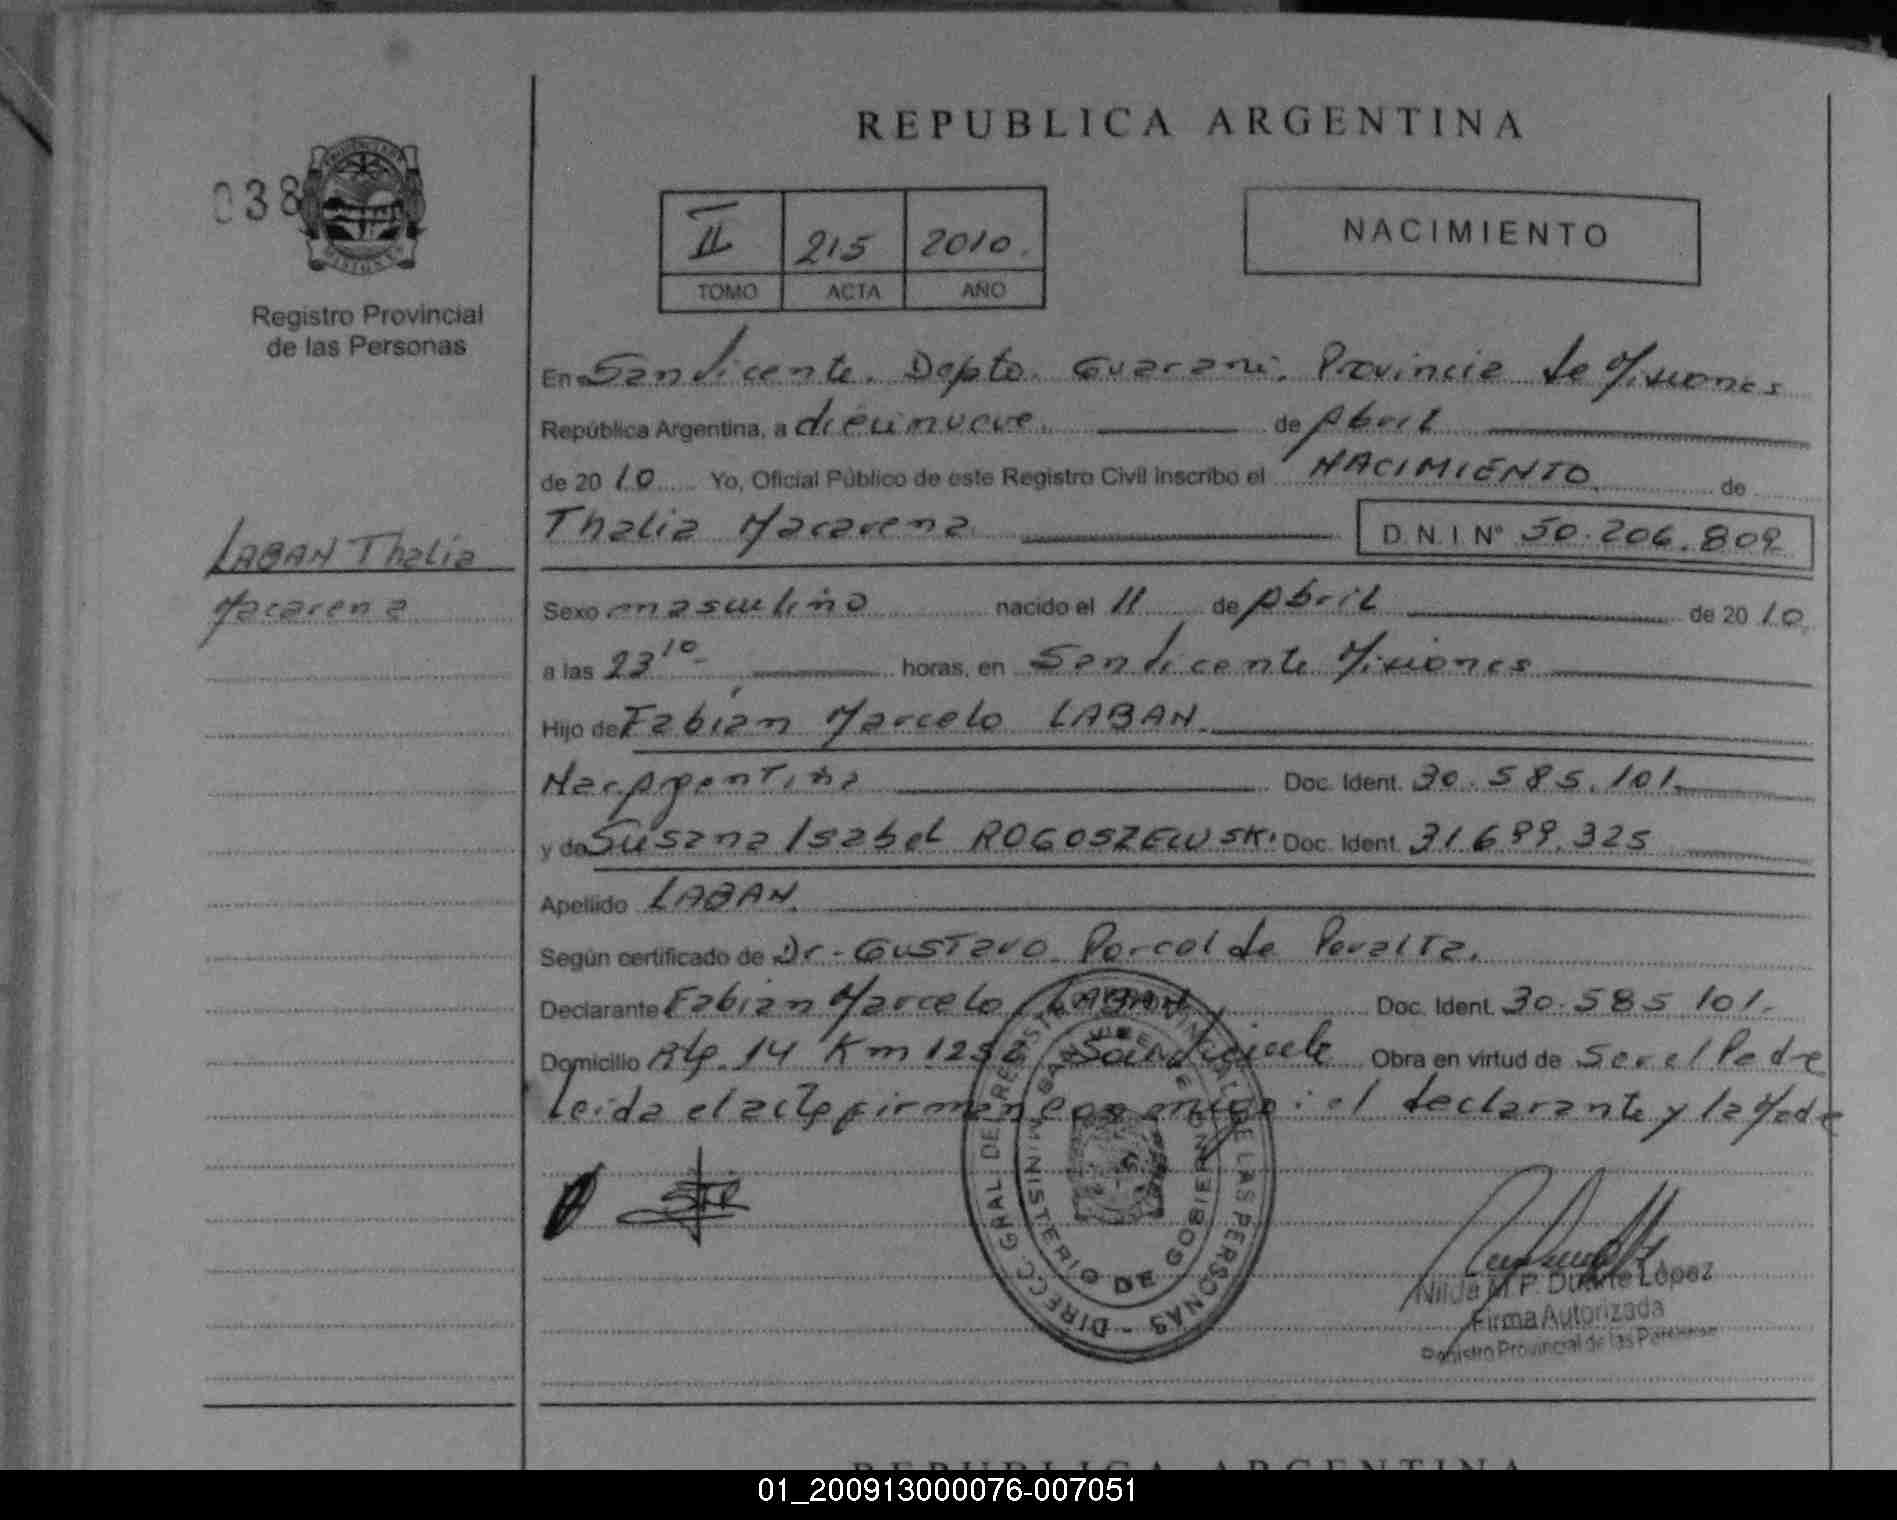 REPUBLICA ARGENTINA
038
II 215 2010.
TOMO ACTA AÑO
NACIMIENTO
Registro Provincial
de las Personas
En San Vicente. Depto. Guarani. Provincia de Misiones
República Argentina, a diecinueve. de Abril
de 20 10 Yo, Oficial Público de este Registro Civil inscribo el NACIMIENTO. de
Thalia Macarena D.N.I. N° 50.206.809
LABAN Thalia
Macarena
Sexo masculino nacido el 11 de Abril de 20 10.
a las 23 10 horas, en San Vicente Misiones
Hijo de Fabián Marcelo LABAN.
Nac Argentina Doc. Ident. 30.585.101.
y de Susana Isabel ROGOSZEWSKI Doc. Ident. 31.699.325
Apellido LABAN.
Según certificado de Dr. Gustavo Porcel de Peralta.
Declarante Fabian Marcelo LABAN Doc. Ident. 30.585 101.
Domicilio Rta. 14 Km 1252 San Vicente Obra en virtud de Ser el Padre
Leida el acta firman conmigo: el declarante y la Madre
DIRECC. GRAL. DE REGISTRO PROVINCIAL DE LAS PERSONAS
MINISTERIO DE GOBIERNO
Nilda M.P. Duarte López
Firma Autorizada
Registro Provincial de las Personas
REPUBLICA ARGENTINA
01_200913000076-007051